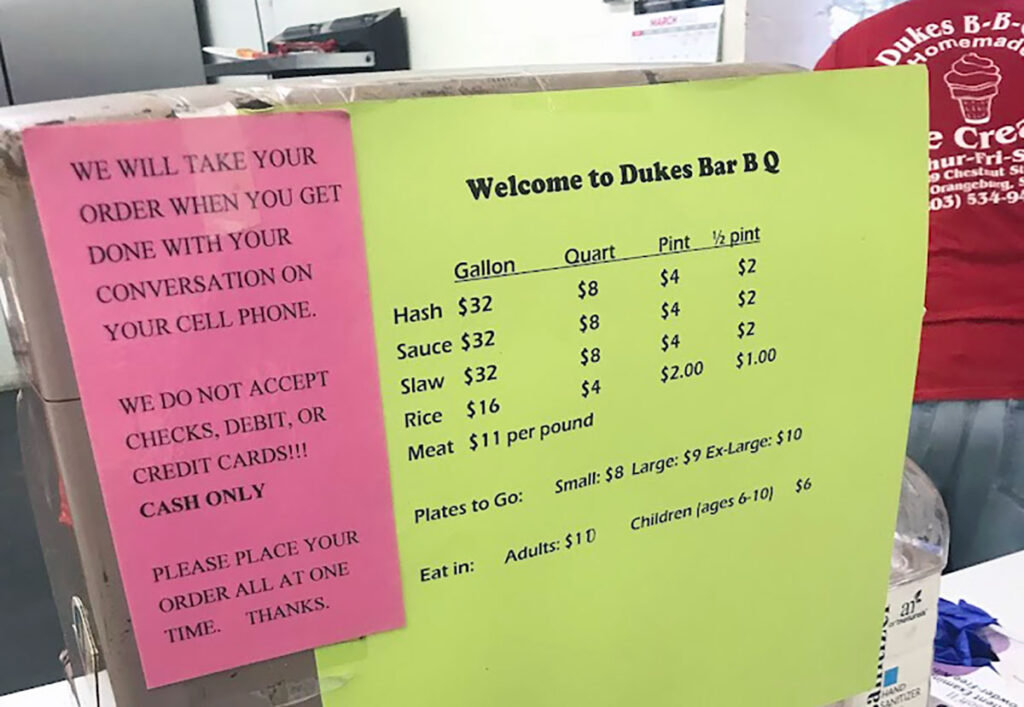 MARCH
Dukes B-B-
Homemad
e Cre
hur-Fri-S
9 Chestnut St
Orangeburg, S
03) 534-9
WE WILL TAKE YOUR
ORDER WHEN YOU GET
DONE WITH YOUR
CONVERSATION ON
YOUR CELL PHONE.
WE DO NOT ACCEPT
CHECKS, DEBIT, OR
CREDIT CARDS!!!
CASH ONLY
PLEASE PLACE YOUR
ORDER ALL AT ONE
TIME. THANKS.
Welcome to Dukes Bar B Q
Gallon Quart Pint ½ pint
Hash $32 $8 $4 $2
Sauce $32 $8 $4 $2
Slaw $32 $8 $4 $2
Rice $16 $4 $2.00 $1.00
Meat $11 per pound
Plates to Go: Small: $8 Large: $9 Ex-Large: $10
Eat in: Adults: $10 Children (ages 6-10) $6
ar
artnaturals
HAND
SANITIZER